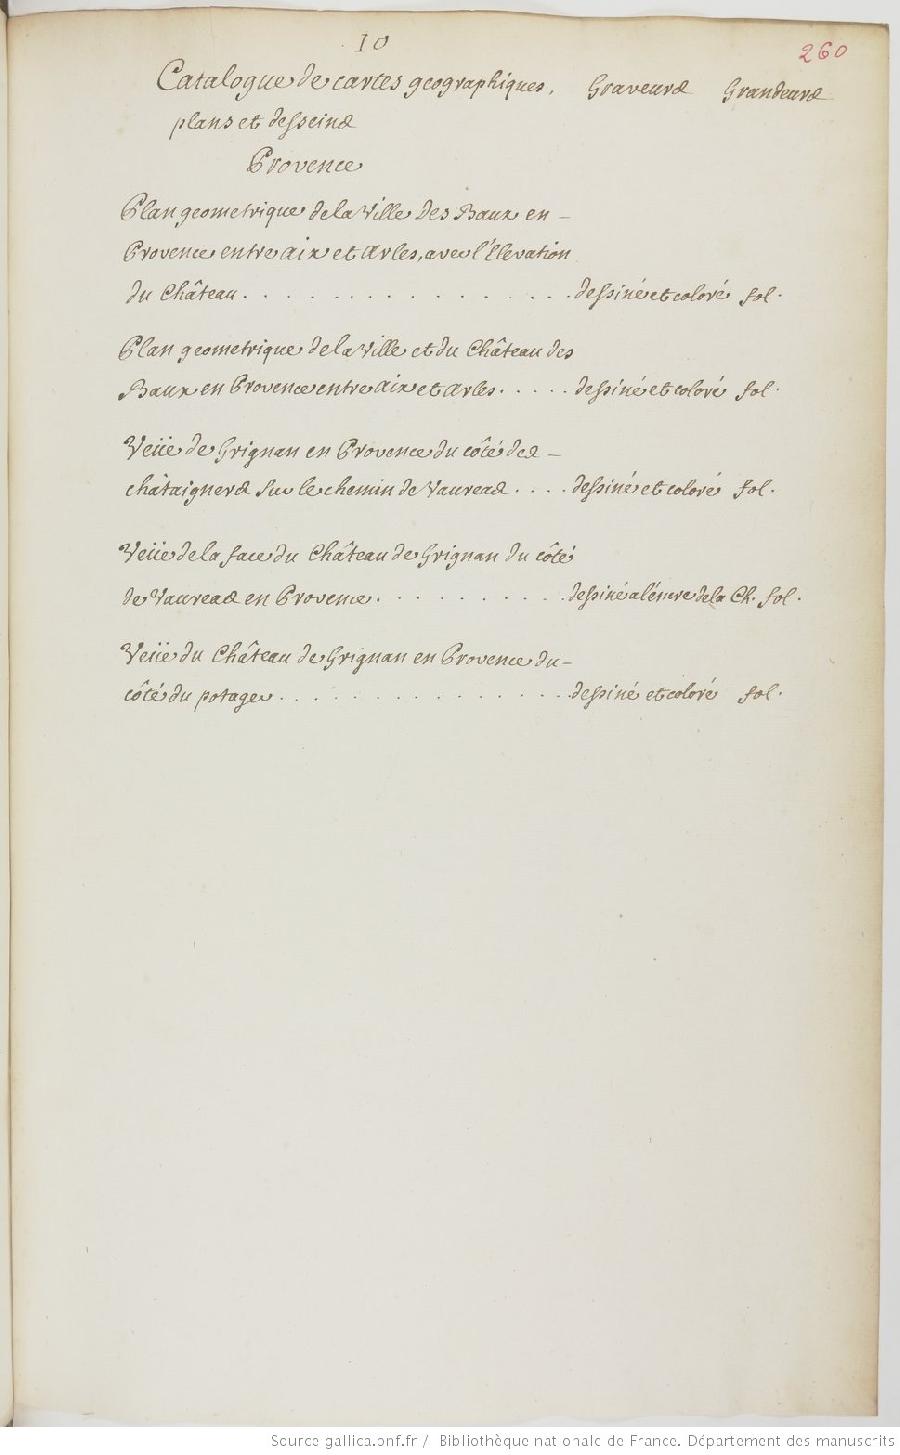 10
260
Catalogue de cartes geographiques, Graveurs Grandeurs
plans et desseins
Provence
Plan geometrique de la Ville Des Baux en –
Provence entre aix et arles, avec l'Elevation
du Château . . . . . . . . . . . . . . . . . dessiné et coloré fol.
Plan geometrique de la Ville et du Château des
Baux en Provence entre aix et arles . . . . . dessiné et coloré fol.
Veüe de Grignan en Provence du côté des –
châtaigners sur le chemin de Vaureas . . . . dessiné et coloré fol.
Veüe de la face du Château de Grignan du côté
de Vaureas en Provence . . . . . . . . . . dessiné a l'encre de la Ch. fol.
Veüe du Château de Grignan en Provence du –
côté du potager . . . . . . . . . . . . . . . . dessiné et coloré fol.
Source gallica.bnf.fr / Bibliothèque nationale de France. Département des manuscrits